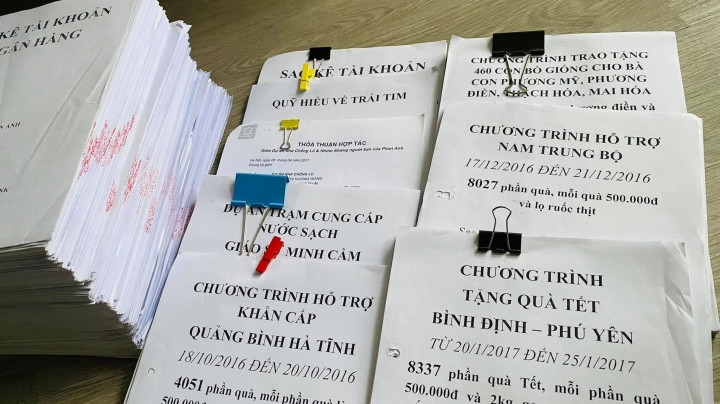 KÊ TÀI KHOẢN
GÂN HÀNG
AN ANH
NK
SAO KÊ TÀI KHOẢN
QUỸ HIỂU VỀ TRÁI TIM
THỎA THUẬN HỢP TÁC
Giữa Dự án Nhà Chống Lũ & Nhóm những người bạn của Phan Anh
DỰ ÁN TRẠM CUNG CẤP
NƯỚC SẠCH
GIÁO SỨ MINH CẦM
CHƯƠNG TRÌNH HỖ TRỢ
KHẨN CẤP
QUẢNG BÌNH HÀ TĨNH
18/10/2016 ĐẾN 20/10/2016
4051 phần quà, mỗi phần quà
500.000đ
CHƯƠNG TRÌNH TRAO TẶNG
460 CON BÒ GIỐNG CHO BÀ
CON PHƯƠNG MỸ, PHƯƠNG
ĐIỀN, THẠCH HÓA, MAI HÓA
ương điền và
CHƯƠNG TRÌNH HỖ TRỢ
NAM TRUNG BỘ
17/12/2016 ĐẾN 21/12/2016
8027 phần quà, mỗi quà 500.000đ
và lọ ruốc thịt
CHƯƠNG TRÌNH
TẶNG QUÀ TẾT
BÌNH ĐỊNH – PHÚ YÊN
TỪ 20/1/2017 ĐẾN 25/1/2017
8337 phần quà Tết, mỗi phần quà
500.000đ và 2kg